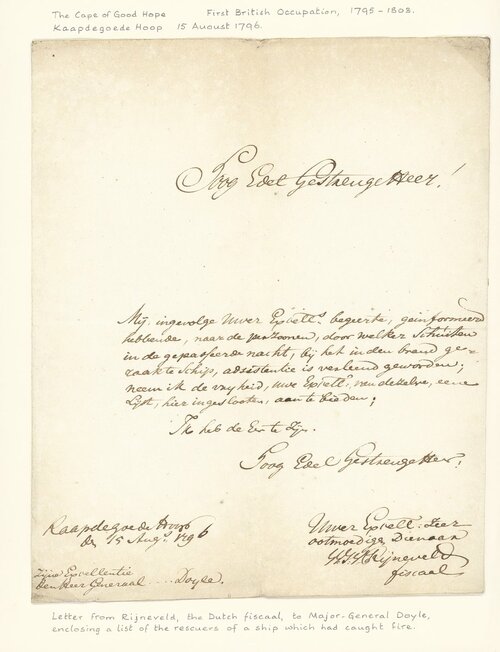 The Cape of Good Hope First British Occupation, 1795-1803.
Kaapdegoede Hoop 15 August 1796.
Hoog Edel Gestrenge Heer!
Mij, ingevolge Uwer Excell.s begeerte, geinformeerd
hebbende, naar de persoonen, door welker Schuiten
in de gepasseerde nacht, bij het in den brand ge-
raakte Schip, adsistentie is verleend geworden;
neem ik de vryheid, Uwe Excell.e van dezelve, eene
Lyst, hier ingeslooten, aan te bieden;
Ik heb de Eer te Zijn.
Hoog Edel Gestrenge Heer;
Kaapdegoede Hoop
den 15 Aug.s 1796
Uwer Excell: Zeer
ootmoedige Dienaar
Rijneveld
fiscaal
Zijne Excellentie
den Heer Generaal ... Doyle.
Letter from Rijneveld, the Dutch fiscaal, to Major-General Doyle,
enclosing a list of the rescuers of a ship which had caught fire.